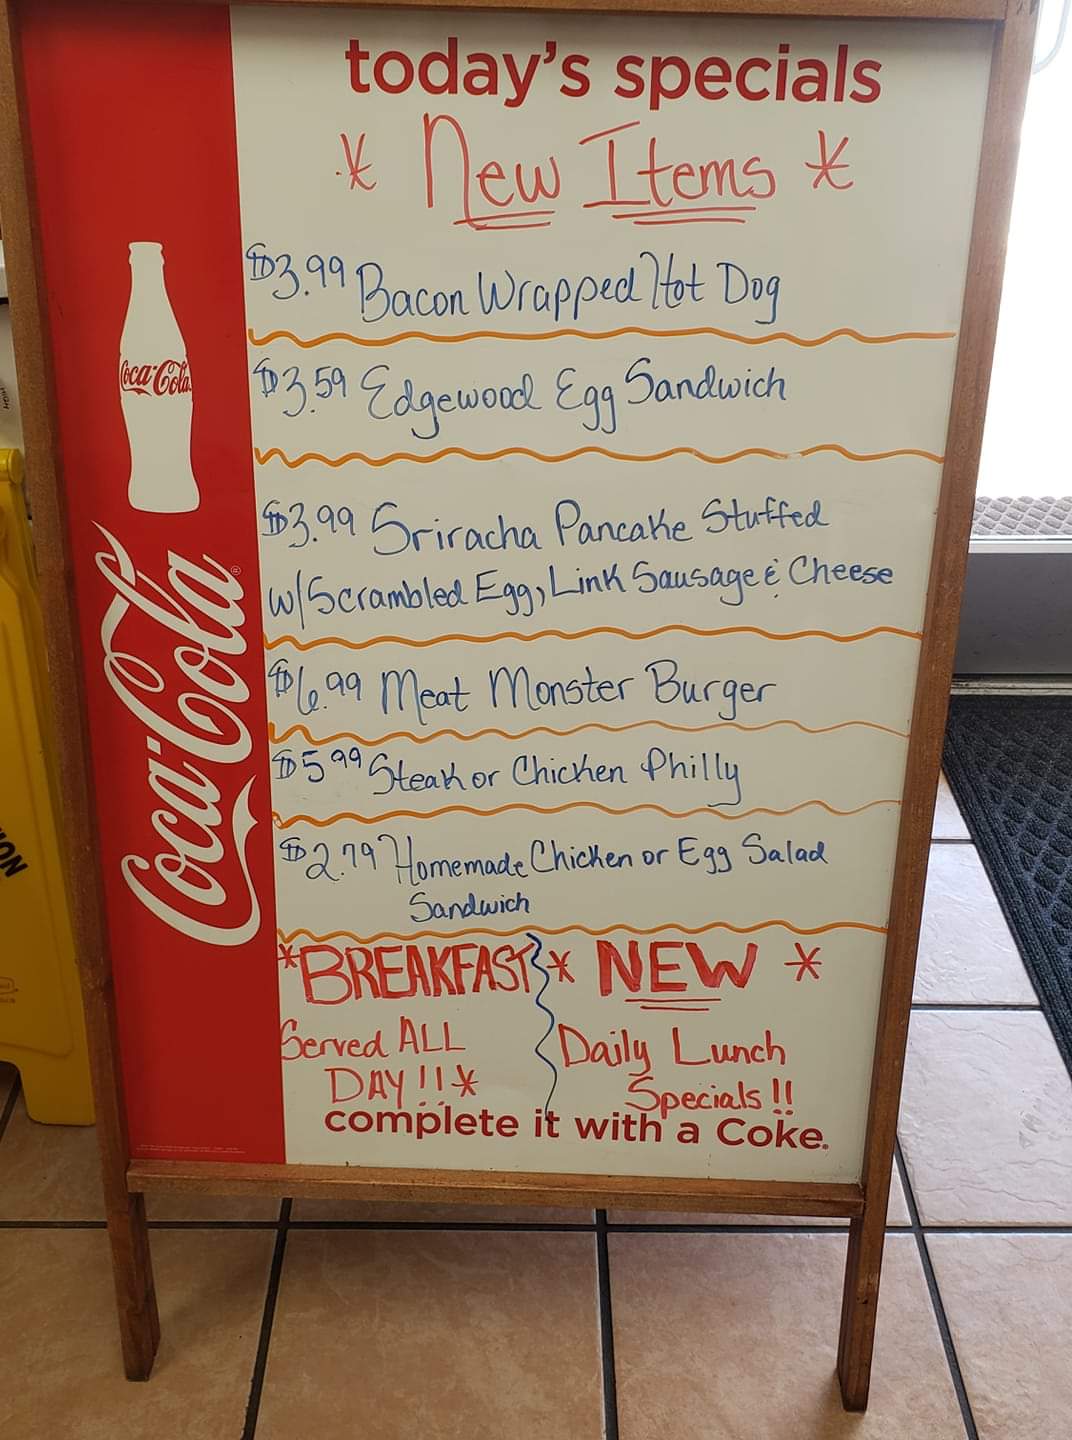 today's specials
* New Items *
$3.99 Bacon Wrapped Hot Dog
$3.59 Edgewood Egg Sandwich
$3.99 Sriracha Pancake Stuffed
w/Scrambled Egg, Link Sausage & Cheese
$6.99 Meat Monster Burger
$5.99 Steak or Chicken Philly
$2.79 Homemade Chicken or Egg Salad
Sandwich
*BREAKFAST
Served ALL
DAY!!*
* NEW *
Daily Lunch
Specials!!
complete it with a Coke.
Coca-Cola
Coca-Cola®